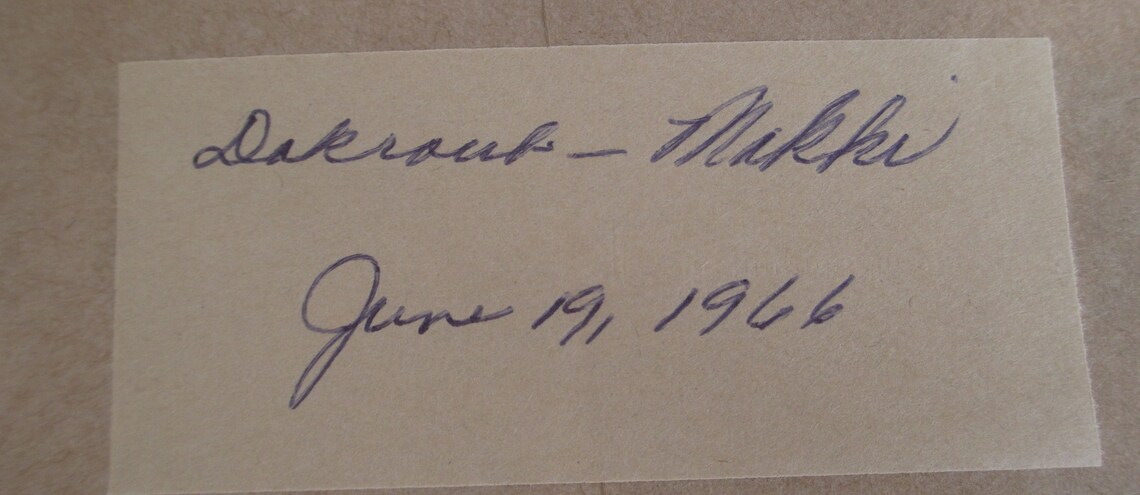 Dakroub - Makki
June 19, 1966